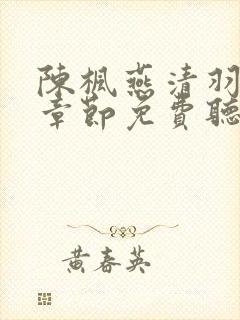 陳楓燕清羽
章節免費聽
黃春英